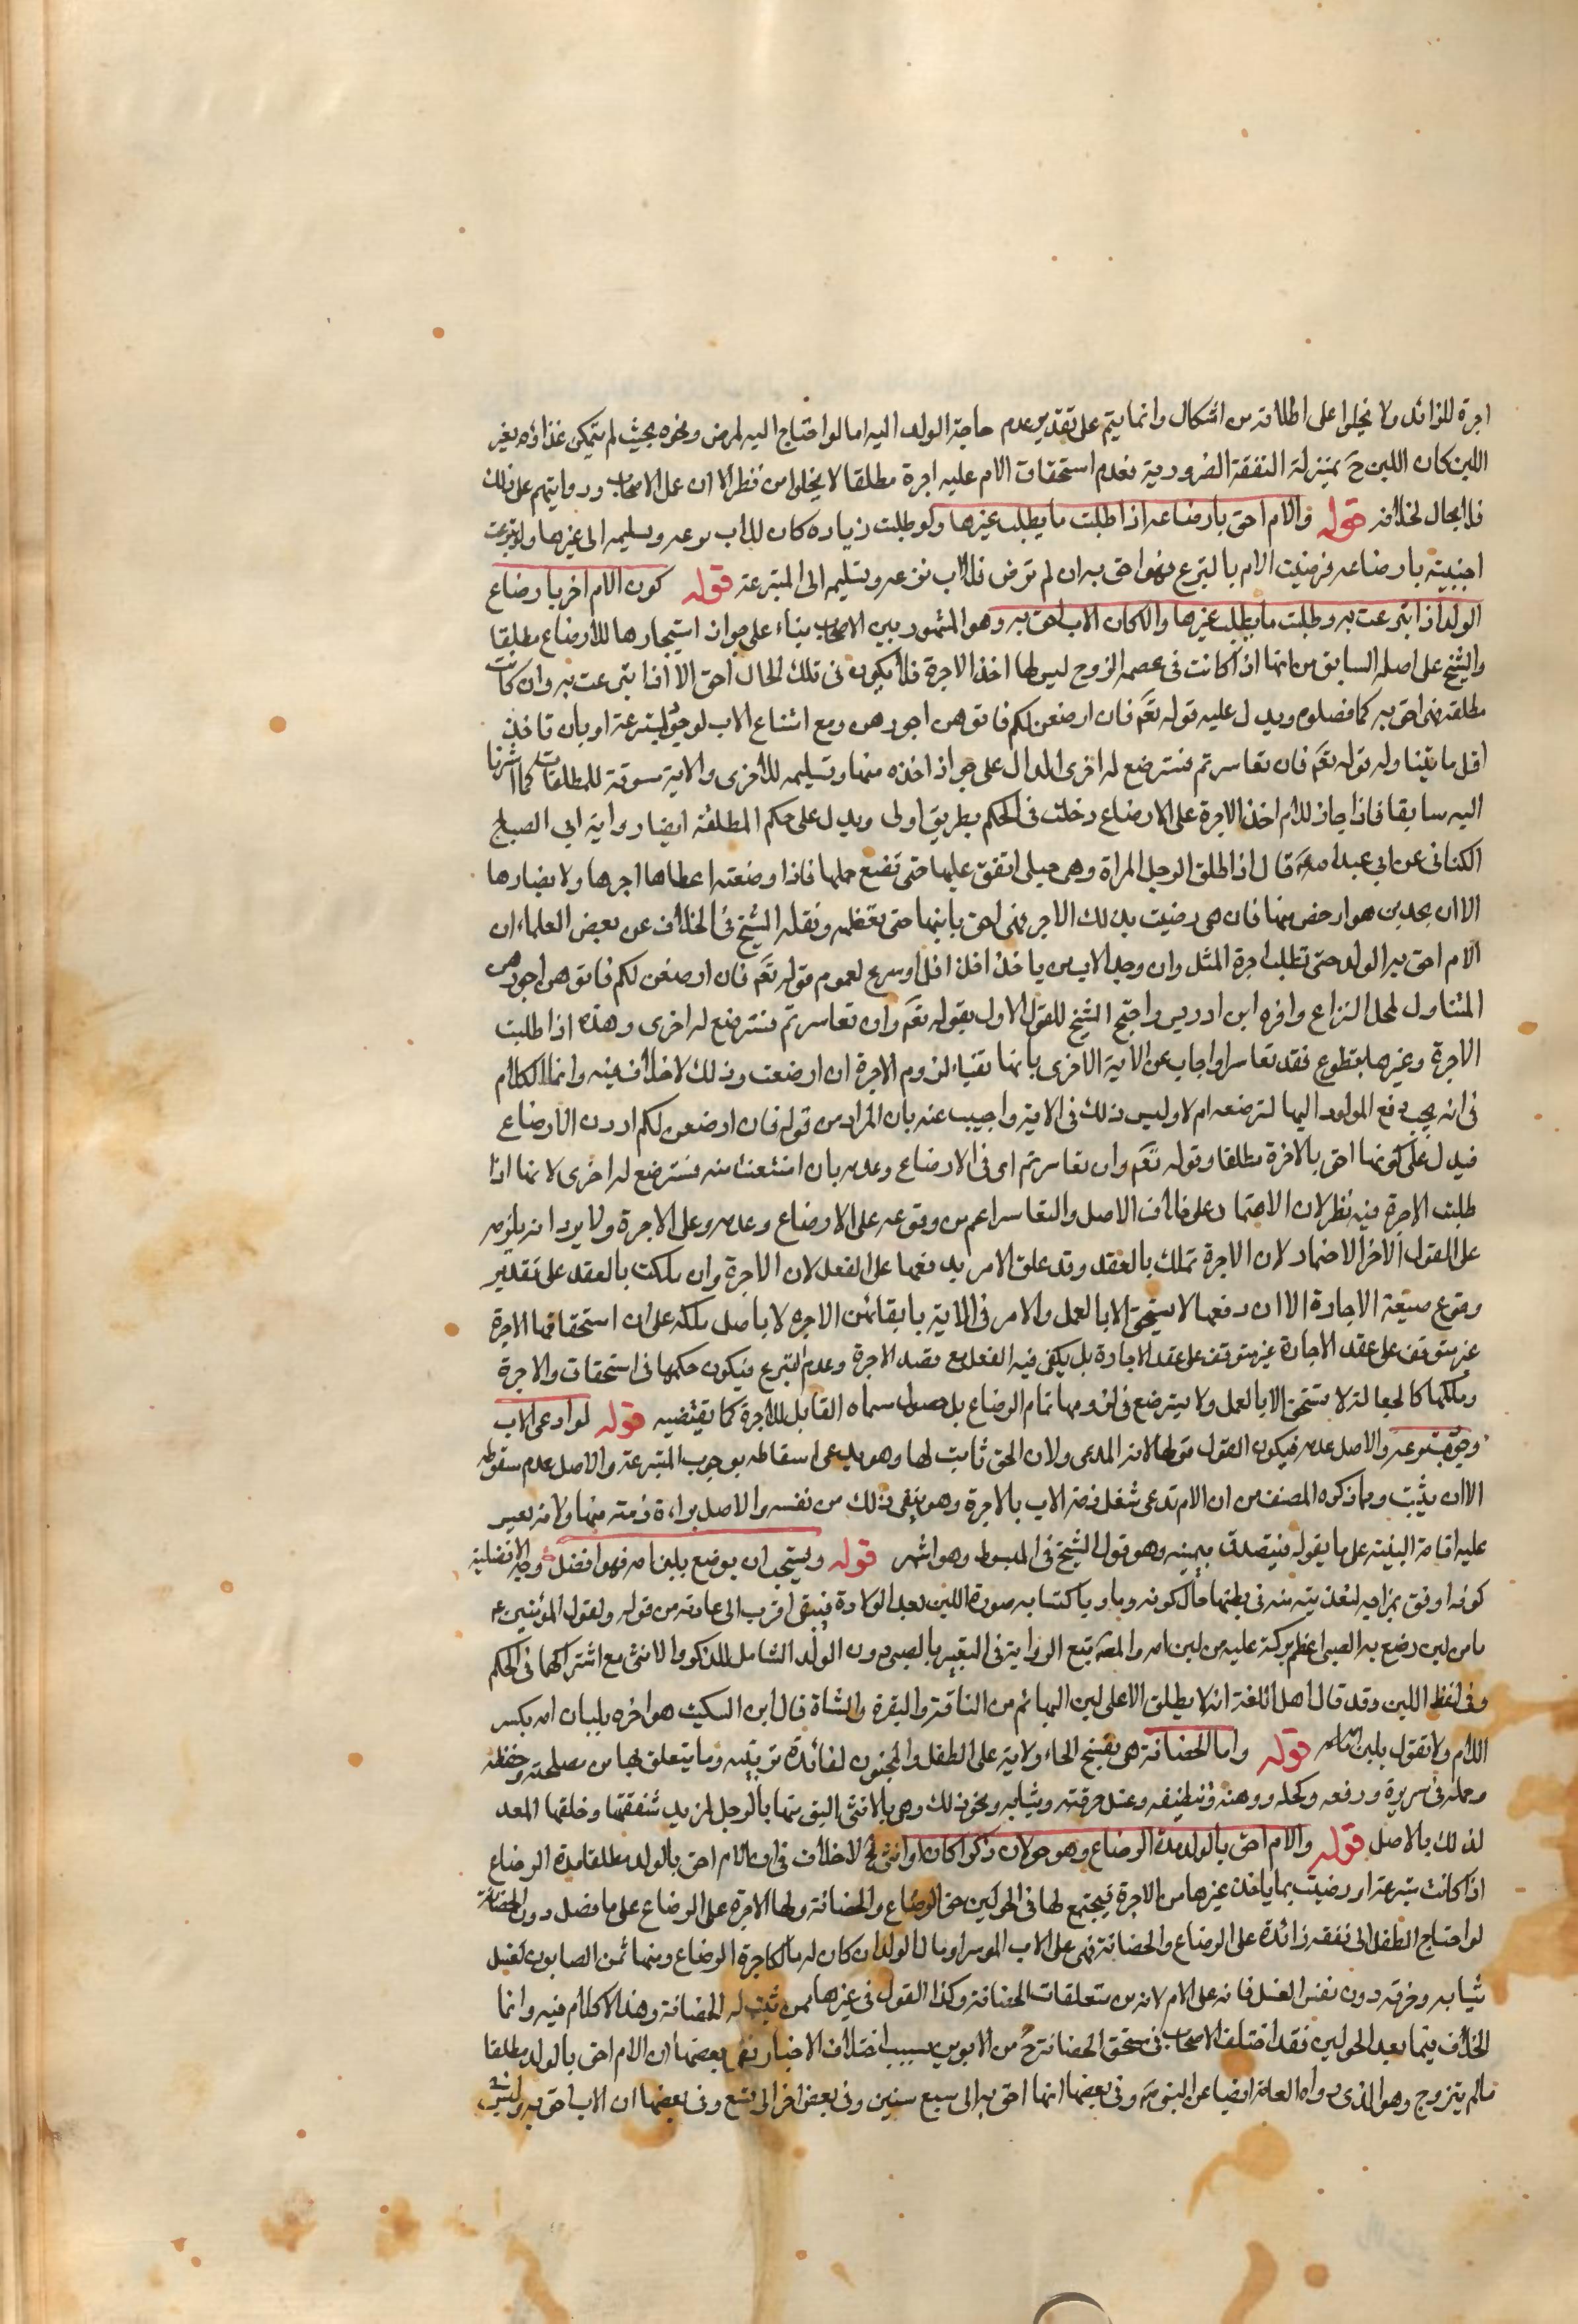 اجرة للزائد ولا يخلوا على اطلاقه من اشكال وانما يتم على تقدير عدم حاجة الولد اليه اما لو احتاج اليه لمرض ونحوه بحيث لم يتمكن غذاؤه بغير
اللبن كان اللبن ح بمنزلة النفقة الضرورية فعدم استحقاق الام عليه اجرة مطلقا لا يخلوا من نظر الا ان عمل الاصحاب وروايتهم على ذلك
فلا مجال لخلافه قوله والام احق بارضاعه اذا طلبت ما يطلب غيرها ولو طلبت زيادة كان للاب نزعه وتسليمه الى غيرها ولو تبرعت
اجنبية بارضاعه فرضيت الام بالتبرع فهو احق به ان لم ترض فللاب نزعه وتسليمه الى المتبرعة قوله كون الام احق بارضاع
الولد اذا تبرعت به وطلبت ما يطلب غيرها والا كان الاب احق به وهو المشهور بين الاصحاب بناء على جواز استيجارها للارضاع مطلقا
والشيخ على اصله السابق من انها اذا كانت في عصمة الزوج ليس لها اخذ الاجرة فلا يكون في تلك الحال احق الا اذا تبرعت به وان كانت
مطلقة فهي احق به كما فصلوه ويدل عليه قوله تعم فان ارضعن لكم فاتوهن اجورهن ومع امتناع الاب لوجود المتبرعة او بان تاخذ
اقل ما يتناوله قوله تعم فان تعاسرتم فسترضع له اخرى الدال على جواز اخذه منها وتسليمه للاخرى والاية مسوقة للمطلقات كما اشرنا
اليه سابقا فاذا جاز للام اخذ الاجرة على الارضاع دخلت في الحكم بطريق اولى ويدل على حكم المطلقة ايضا رواية ابي الصباح
الكناني عن ابي عبد الله قال اذا طلق الرجل المراة وهى حبلى انفق عليها حتى تضع حملها فاذا وضعته اعطاها اجرها ولا يضارها
الا ان يجد من هو ارخص منها فان هى رضيت بذلك الاجر فهى احق بابنها حتى تفطمه ونقل الشيخ في الخلاف عن بعض العلماء ان
الام احق بالولد حتى تطلب اجرة المثل وان وجد الاب من ياخذ اقل او تبرع لعموم قوله تعم فان ارضعن لكم فاتوهن اجورهن
المتناول لمحل النزاع واقره ابن ادريس واحتج الشيخ للقول الاول بقوله تعم وان تعاسرتم فسترضع له اخرى وهذه اذا طلبت
الاجرة وغيرها يتطوع فقد تعاسرا واجاب عن الاية الاخرى بانها تفيد لزوم الاجرة ان ارضعت وذلك لا خلاف فيه وانما الكلام
في انه يجب دفع المولود اليها لترضعه ام لا وليس ذلك في الاية واجيب عنه بان المراد من قوله فان ارضعن لكم اردن الارضاع
فيدل على كونها احق بالاجرة مطلقا وقوله تعم وان تعاسرتم اى في الارضاع وعدمه بان امتنعت منه فسترضع له اخرى لا انها اذا
طلبت الاجرة فيه نظر لان الاضمار على خلاف الاصل والتعاسر اعم من وقوعه على الارضاع وعدمه وعلى الاجرة ولا يرد انه يلزمه
على القول الاخر الاضمار لان الاجرة تملك بالعقد وقد علق الامر بدفعها على الفعل لان الاجرة وان ملكت بالعقد على تقدير
وقوع صيغة الاجارة الا ان دفعها لا يستحق الا بالعمل والامر في الاية بايتائهن الاجرة لا باصل ملكه على ان استحقاقها الاجرة
غير متوقف على عقد الاجارة بل يكفى فيه الفعل مع قصد الاجرة وعدم التبرع فيكون حكمها في استحقاق والاجرة
وملكها كالجعالة لا تستحق الا بالعمل ولا يسترضع في لزومها تمام الرضاع بل حصول مسماه القابل للاجرة كما يقتضيه قوله لو ادعى الاب
وجود متبرعة والاصل عدمه فيكون القول قولها لانه المدعى ولان الحق ثابت لها وهو يدعى اسقاطه بوجود المتبرعة والاصل عدم سقوطه
الا ان يثبت وما ذكره المصنف من ان الام تدعى شغل ذمة الاب بالاجرة وهو ينفى ذلك من نفسه والاصل براءة ذمته منها ولانه يعسر
عليه اقامة البينة على ما يقوله فيتصدق بيمينه وهو قول الشيخ في المبسوط وهو اشهر قوله ويستحب ان يرضع بلبن امه فهو افضل وجه الافضلية
كونه اوفق بمزاجه لتغذيته منه في بطنها حال كونه وباويا كتسابه صورة اللبن بعد الولادة فيبقى اقرب الى عادته من قوله ولقول امير المؤمنين ع
ما من لبن رضع به الصبى اعظم بركة عليه من لبن امه والمصنف تبع الرواية في التعبير بالصبى دون الولد الشامل للذكر والانثى مع اشتراكهما في الحكم
وفي لفظ اللبن وقد قال اهل اللغة انه لا يطلق الا على لبن البهائم من الناقة والبقرة والشاة قال ابن السكيت هو اخوه بلبان امه بكسر
اللام ولا تقول بلبن امه قوله واما الحضانة هى بفتح الحاء ولاية على الطفل والمجنون لفائدة تربيته وما يتعلق بها من مصلحته وحفظه
وجعله في سريره ورفعه وكحله ودهنه وتنظيفه وغسل خرقته وثيابه ونحو ذلك وهى بالانثى اليق منها بالرجل لمزيد شفقتها وخلقها المعد
لذلك بالاصل قوله والام احق بالولد مدة الرضاع وهو حولان ذكرا كان او انثى الخ لا خلاف في ان الام احق بالولد مطلقا مدة الرضاع
اذا كانت متبرعة او رضيت بما ياخذ غيرها من الاجرة فيجتمع لها في الحولين حق الرضاع والحضانة ولها الاجرة على الرضاع على ما فصل دون الحضانة
لو احتاج الطفل الى نفقة زائدة على الرضاع والحضانة فهى على الاب الموسر او مال الولد ان كان له مال كاجرة الرضاع ومنها ثمن الصابون لغسل
ثيابه وخرقه دون نفس الغسل فانه على الام لانه من متعلقات الحضانة وكذا القول في غيرها ممن ثبت له الحضانة وهذا لا كلام فيه وانما
الخلاف فيما بعد الحولين فقد اختلف الاصحاب في مستحق الحضانة ح من الابوين بسبب اختلاف الاخبار ففى بعضها ان الام احق بالولد مطلقا
ما لم يتزوج وهو الذى رواه العامة ايضا عن النبي ص وفى بعضها انها احق به الى سبع سنين وفى بعض اخر الى تسع وفى بعضها ان الاب احق به وليس